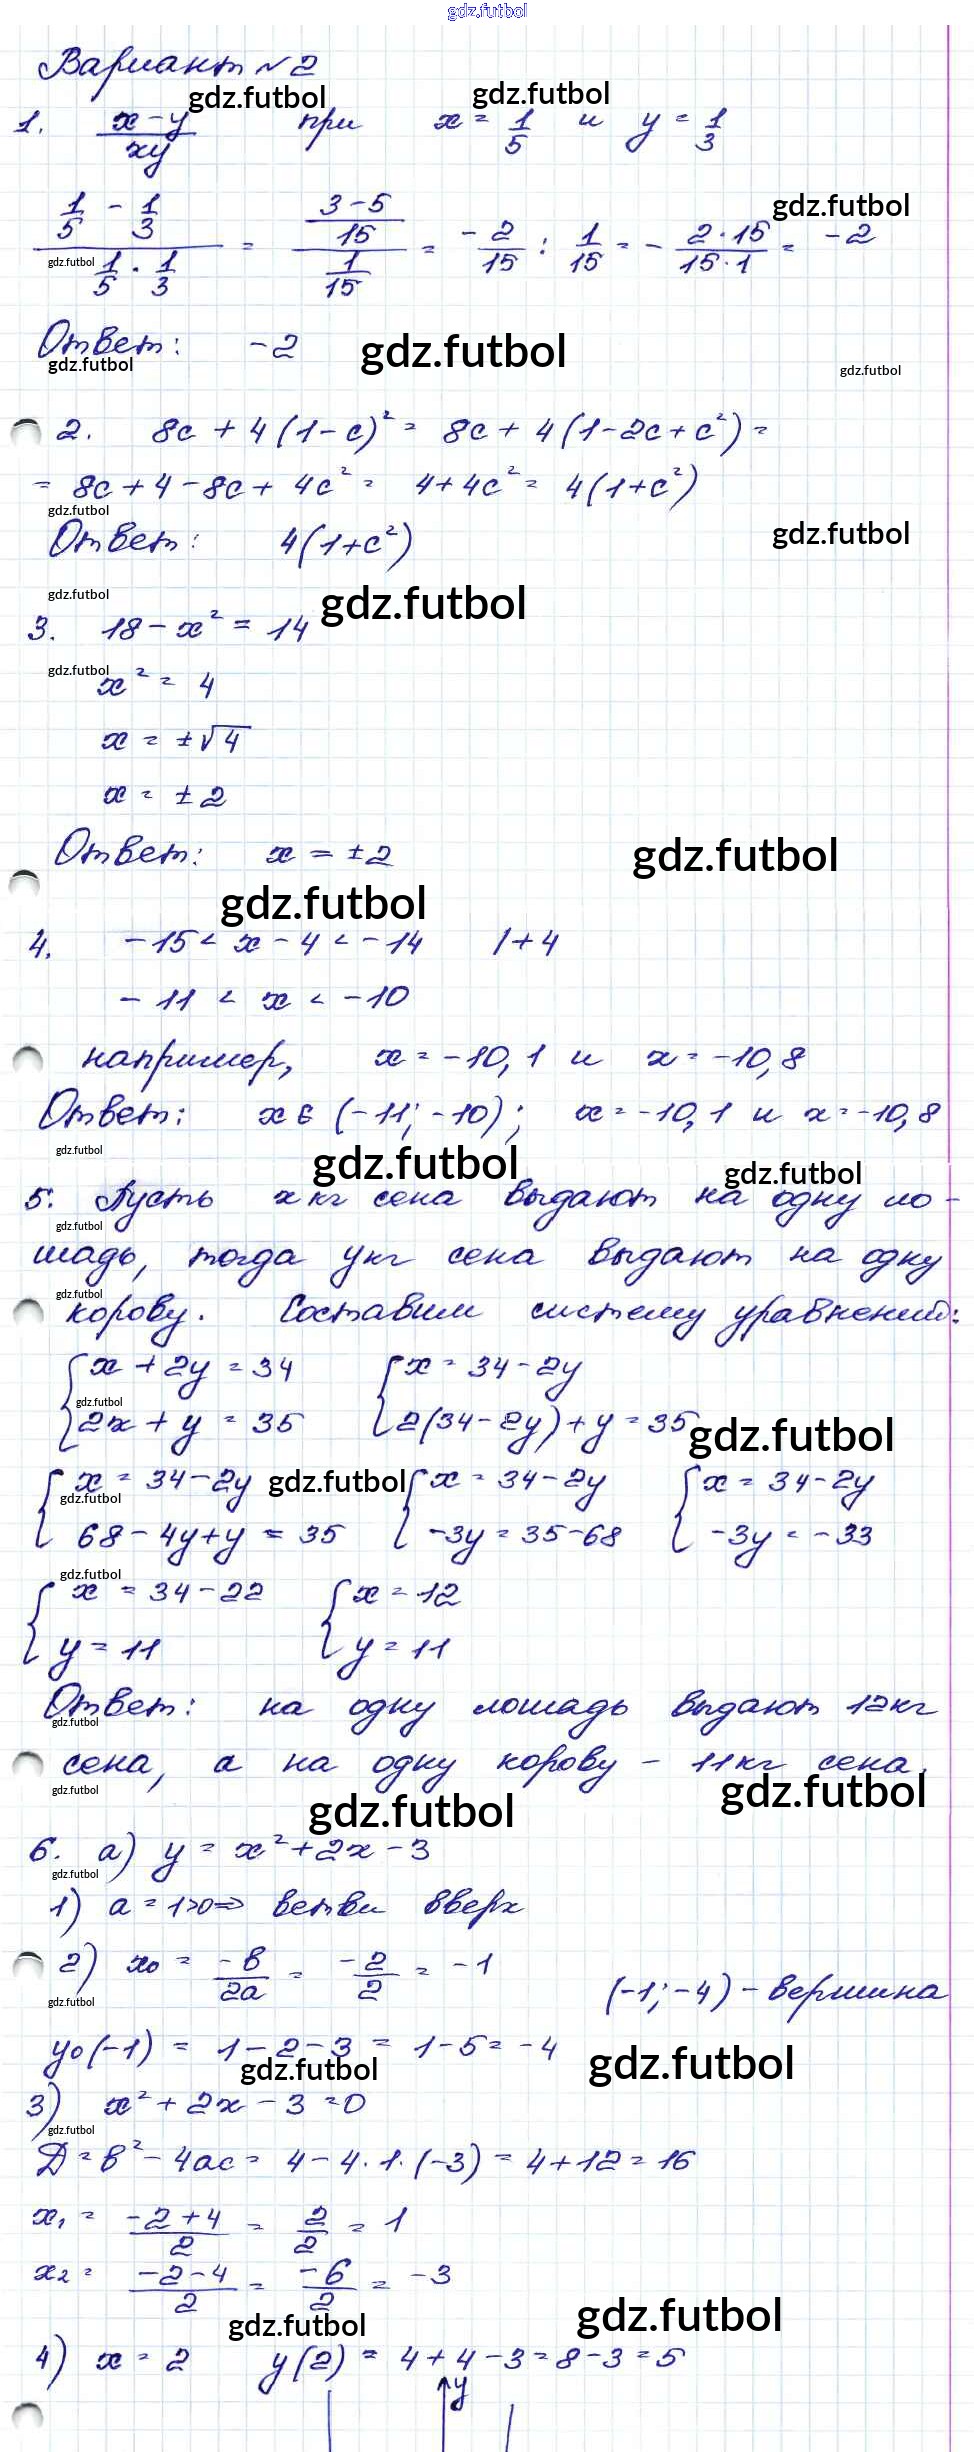 gdz.futbol
Вариант №2
gdz.futbol gdz.futbol
1. (x-y)/(xy) при x = 1/5 и y = 1/3
gdz.futbol
(1/5 - 1/3)/(1/5 · 1/3) = ((3-5)/15)/(1/15) = -2/15 : 1/15 = - (2·15)/(15·1) = -2
gdz.futbol
Ответ: -2
gdz.futbol gdz.futbol gdz.futbol
2. 8c + 4(1-c)² = 8c + 4(1-2c+c²) =
= 8c + 4 - 8c + 4c² = 4 + 4c² = 4(1+c²)
gdz.futbol
Ответ: 4(1+c²)
gdz.futbol
gdz.futbol gdz.futbol
3. 18 - x² = 14
gdz.futbol
x² = 4
x = ±√4
x = ±2
Ответ: x = ±2
gdz.futbol
gdz.futbol
4. -15 < x - 4 < -14 |+4
-11 < x < -10
например, x = -10,1 и x = -10,8
Ответ: x ∈ (-11; -10); x = -10,1 и x = -10,8
gdz.futbol gdz.futbol gdz.futbol
5. Пусть x кг сена выдают на одну ло-
gdz.futbol
шадь, тогда y кг сена выдают на одну
gdz.futbol
корову. Составим систему уравнений:
{ x + 2y = 34 { x = 34 - 2y
gdz.futbol
2x + y = 35 2(34 - 2y) + y = 35
gdz.futbol
{ x = 34 - 2y { x = 34 - 2y { x = 34 - 2y
gdz.futbol gdz.futbol
68 - 4y + y = 35 -3y = 35 - 68 -3y = -33
gdz.futbol
{ x = 34 - 22 { x = 12
y = 11 y = 11
Ответ: на одну лошадь выдают 12 кг
gdz.futbol
сена, а на одну корову - 11 кг сена.
gdz.futbol gdz.futbol gdz.futbol
6. а) y = x² + 2x - 3
gdz.futbol
1) a = 1>0 => ветви вверх
2) x₀ = -b/2a = -2/2 = -1
gdz.futbol
(-1; -4) - вершина
y₀(-1) = 1 - 2 - 3 = 1 - 5 = -4
gdz.futbol gdz.futbol
3) x² + 2x - 3 = 0
gdz.futbol
Д = b² - 4ac = 4 - 4·1·(-3) = 4 + 12 = 16
x₁ = (-2+4)/2 = 2/2 = 1
x₂ = (-2-4)/2 = -6/2 = -3
gdz.futbol gdz.futbol
4) x = 2 y(2) = 4 + 4 - 3 = 8 - 3 = 5
y